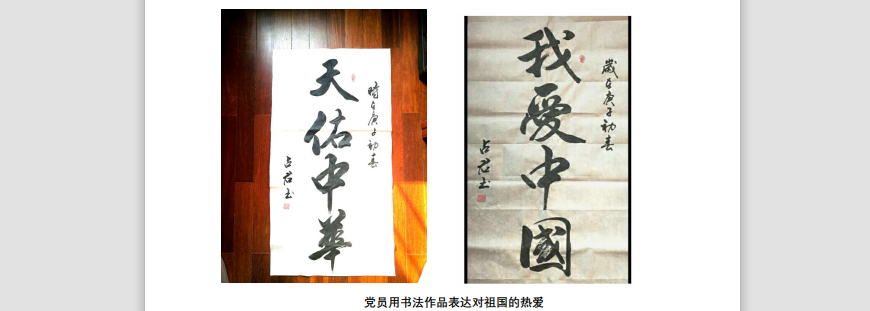 天佑中華
時在庚子初春
占君书
我愛中國
歲在庚子初春
占君书
党员用书法作品表达对祖国的热爱